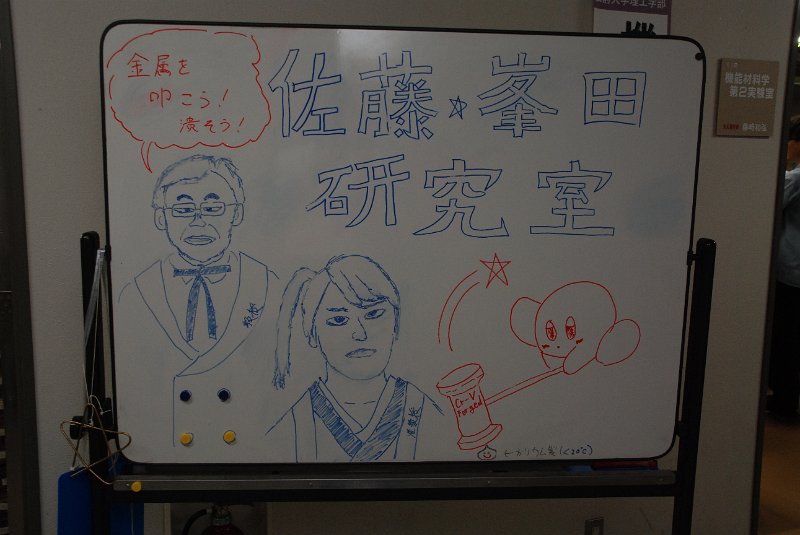 金属を
叩こう！
潰そう！
佐藤☆峯田
研究室
Cr-V
Forged
←ガリウム製(<20℃)
機能材料学
第2実験室